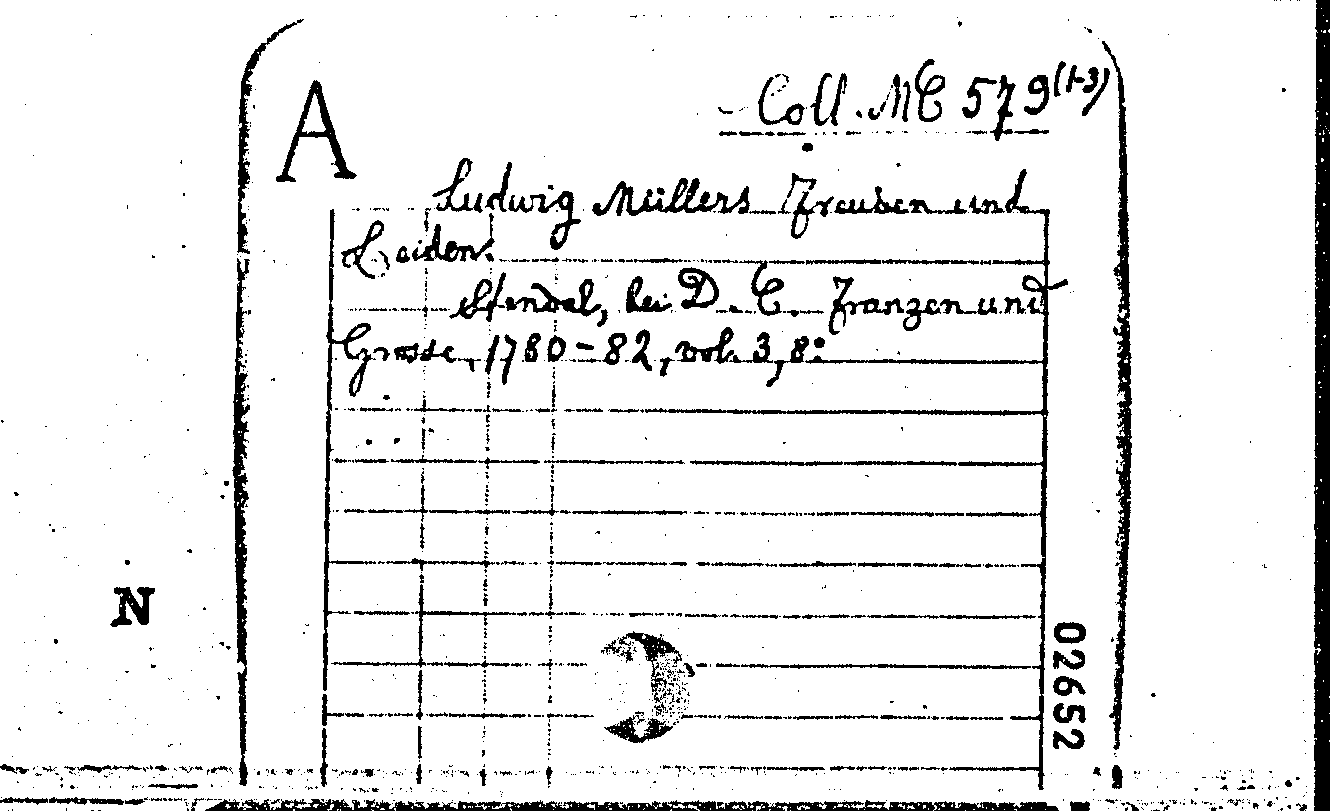 A
Coll. MC 579(1-3)
Ludwig Müllers Freuden und
Leiden.
Stendal, bei D. C. Franzen und
Grosse, 1780-82, vol. 3, 8:
N
02652